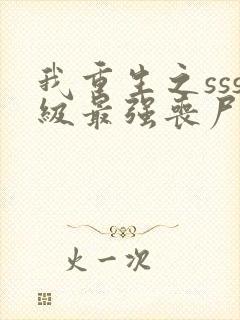 我重生之sss
级最强丧尸
火一次